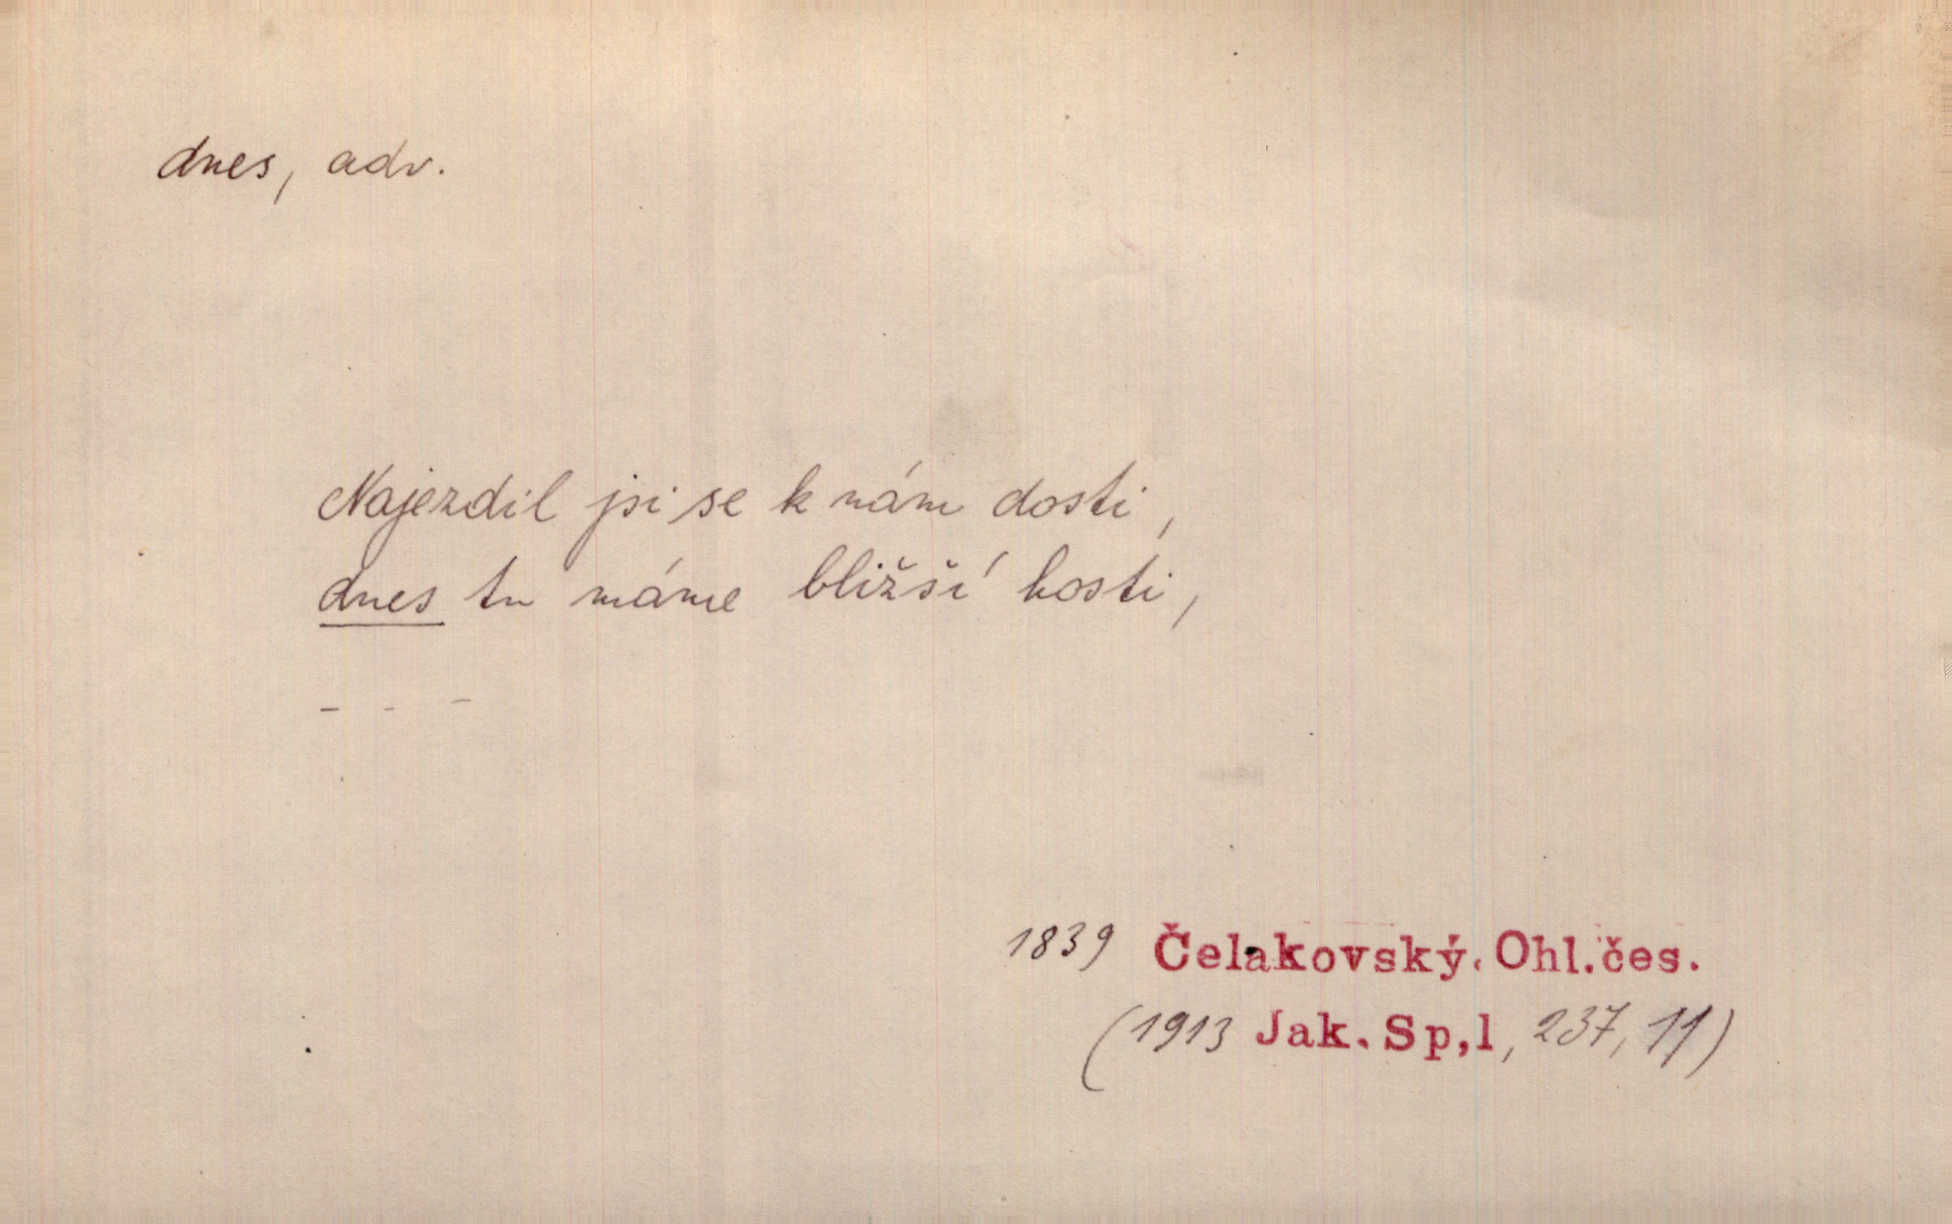 dnes, adv.
Najezdil jsi se k nám dosti,
dnes tu máme bližší hosti,
- - -
1839 Čelakovský. Ohl.čes.
(1913 Jak. Sp,1, 237, 11)